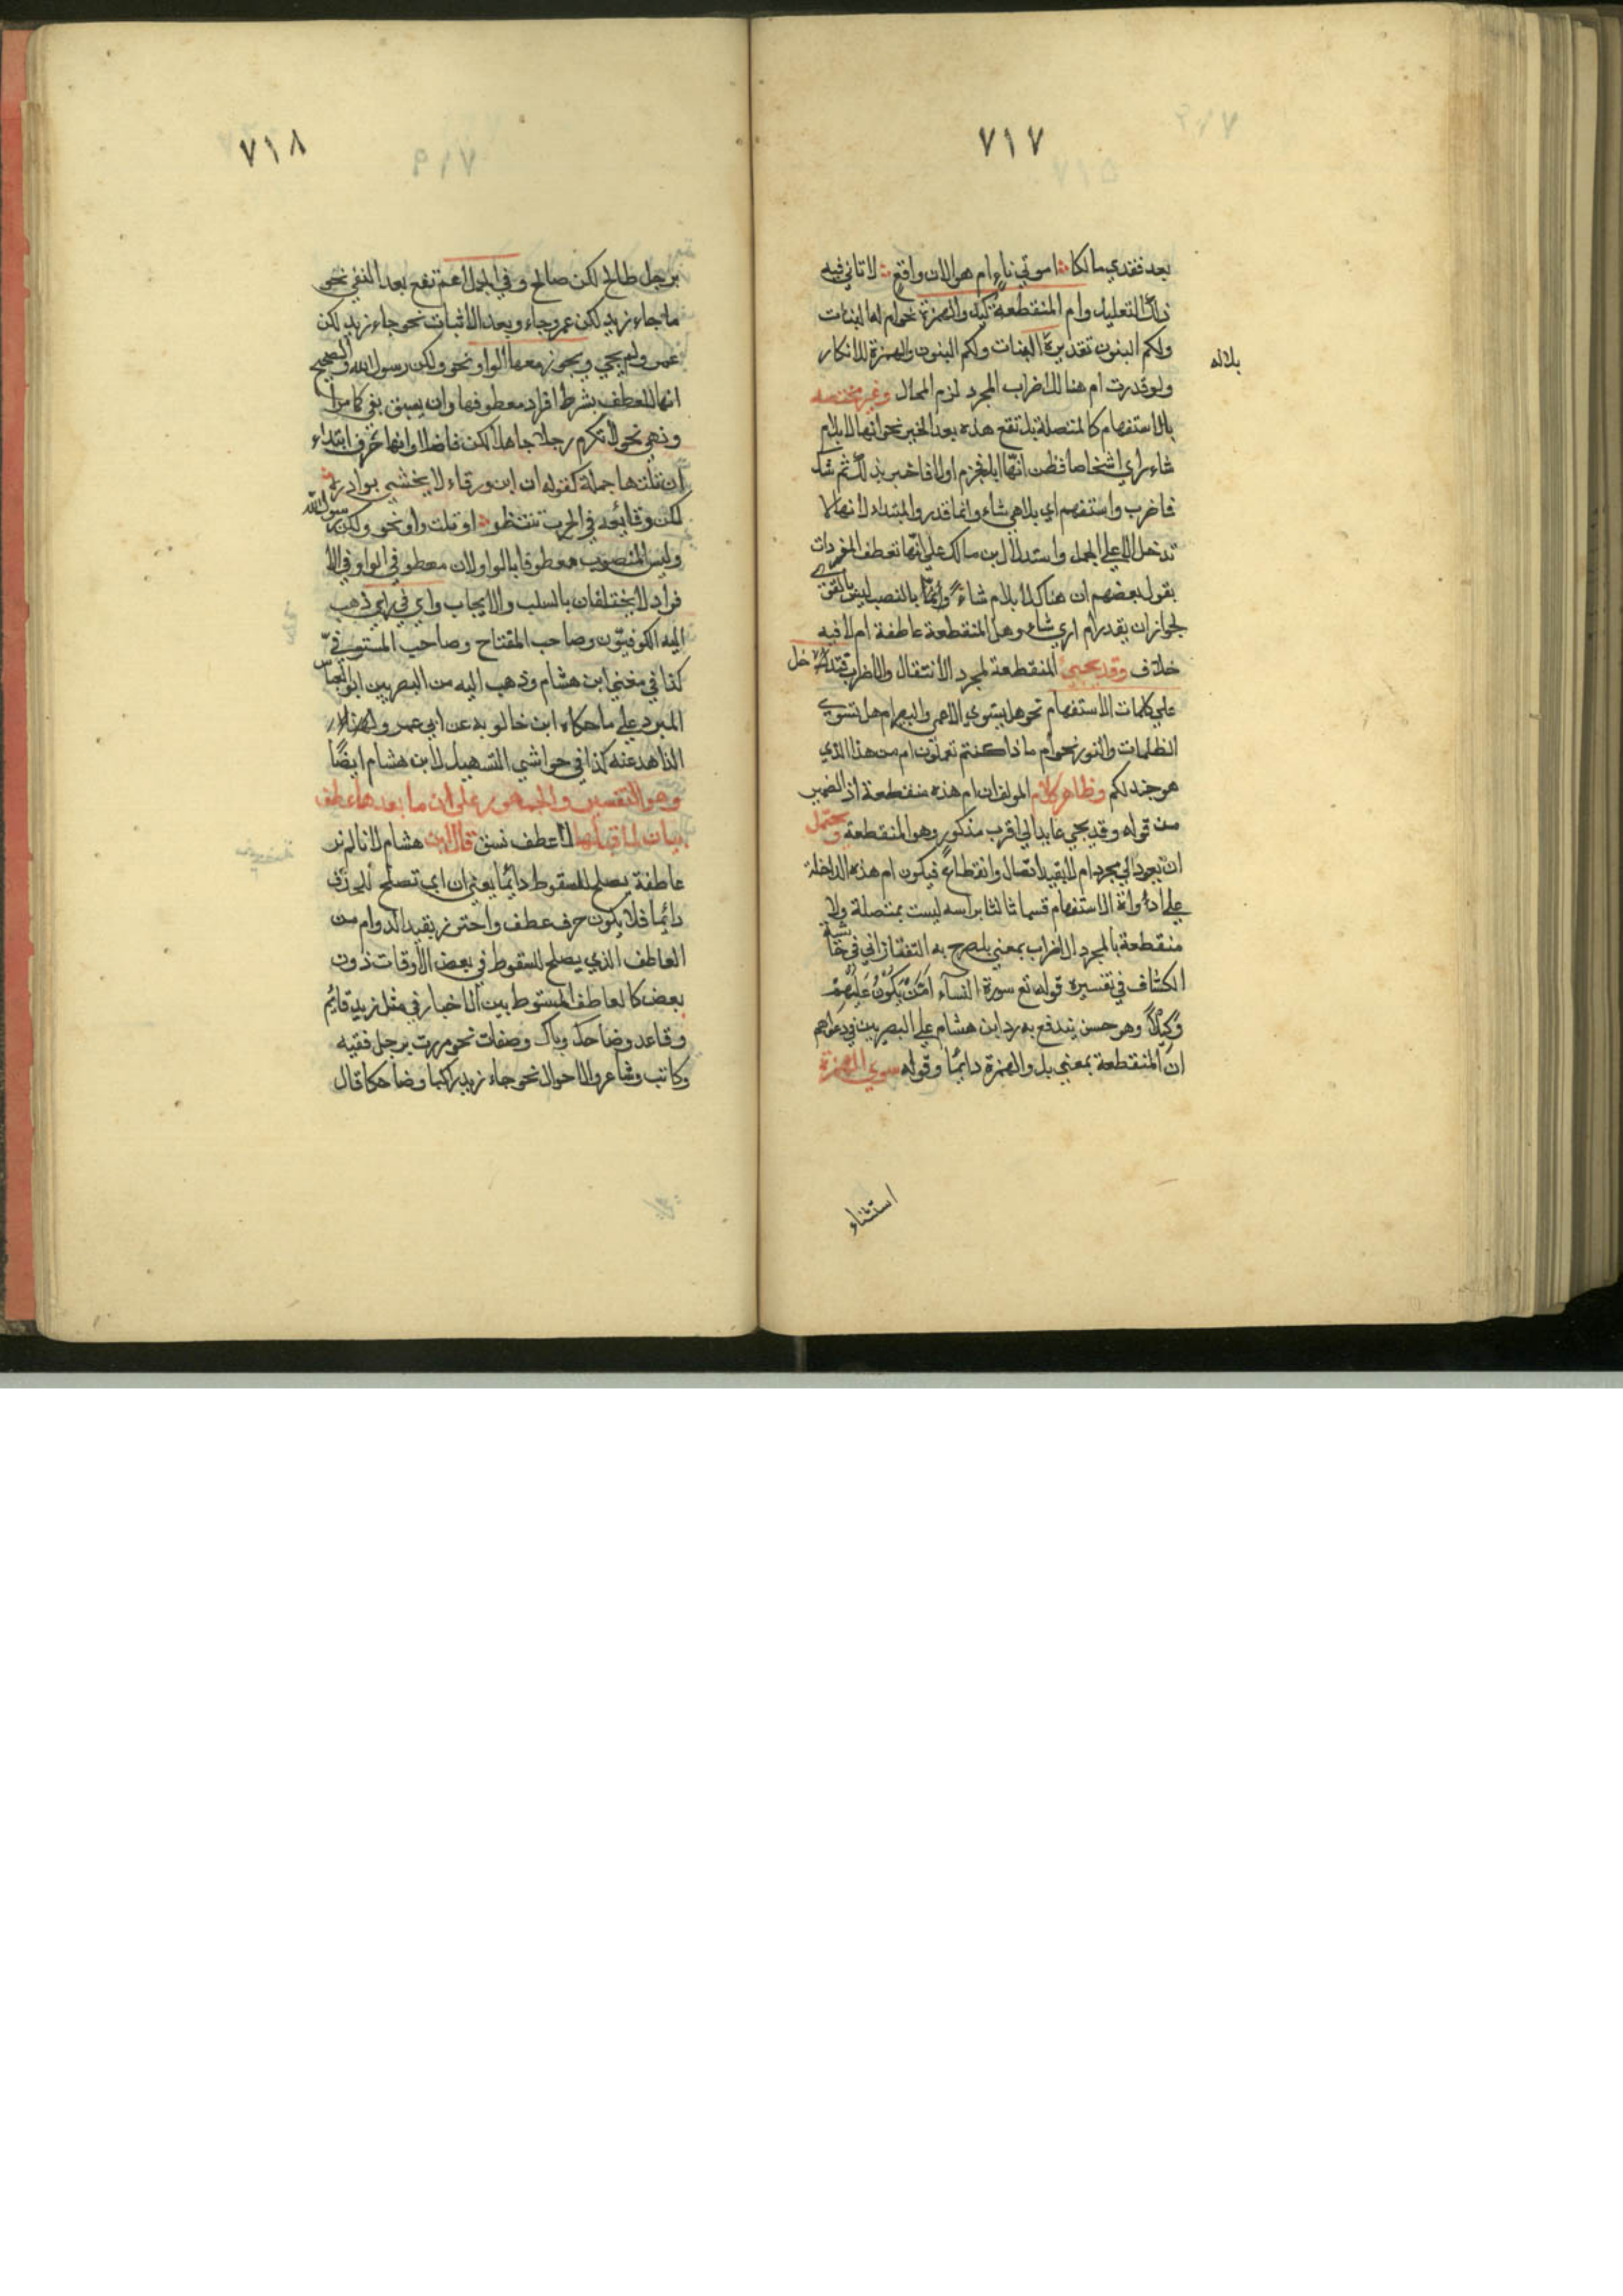 ٧١٧
بعد فقدي مالكا اموتي ناء ام هو الان واقع لا تاتي فيه
ذلك التعليل وام المنقطعة كبل والهمزة نحو ام له البنات
ولكم البنون تقديره البنات ولكم البنون والهمزة للانكار
بلاله
ولو قدرت ام هنا للاضراب المجرد لزم المحال وغير مختصه
بالاستفهام كالمتصلة بل تقع هذه بعد الخبر نحو انها لابل ام
شاء راي اشخاصا فظن انها ابل فجزم اولا فاخبر بذلك ثم شك
فاضرب واستفهم اي بل اهي شاء وانما قدر والمبتداء لانها لا
تدخل الا علي الجمل واستدلال ابن مالك علي انها تعطف المفردات
بقول بعضهم ان هناك لابلا ام شاء وانما بالنصب ليس بالقوي
لجواز ان يقدر ام اري شاء وهل المنقطعة عاطفة ام لا فيه
خلاف وقد يجيئ المنقطعة لمجرد الانتقال والاضراب فتدخل
علي كلمات الاستفهام نحو هل يستوي الاعمي والبصير ام هل تستوي
الظلمات والنور نحو ام ماذا كنتم تعملون ام من هذا الذي
هو جند لكم وظاهر كلام المولف ان ام هذه منقطعة اذ الضمير
من قوله وقد يجي عايد الي اقرب مذكور وهو المنقطعة ويحتمل
ان يعود الي مجرد ام لا بقيد اتصال وانقطاع فيكون ام هذه الداخلة
علي ادوات الاستفهام قسما ثالثا براسه ليست بمتصلة ولا
منقطعة بل لمجرد الاضراب بمعني بل صرح به التفتازاني في حاشية
الكشاف في تفسيره قوله تع سورة النساء امن يكون عليهم
وكيلا وهو حسن يندفع به رد ابن هشام علي البصريين في دعواهم
ان المنقطعة بمعني بل والهمزة دايما وقوله سوي الهمزة
استثناء
٧١٨
برجل طالح لكن صالح وفي الجمل اعم تقع بعد النفي نحو
ما جاء زيد لكن عمرو جاء وبعد الاثبات نحو جاء زيد لكن
عمرو لم يجي ويجوز معها الواو نحو ولكن رسول الله والصحيح
انها للعطف بشرط افراد معطوفها وان يسبق بنفي كما مر
ونهي نحو لا تكرم رجلا جاهلا لكن فاضلا وانها حرف ابتداء
ان تلتها جملة كقوله ان ابن ورقاء لا يخشي بوادره
لكن وقائعه في الحرب تنتظر او تلت واو نحو ولكن رسول الله
وليس المنصوب معطوفا بالواو لان معطوفي الواو في الا
فراد لا يختلفان بالسلب والايجاب واي في راي ذهب
اليه الكوفيون وصاحب المفتاح وصاحب المستوفي
كذا في مغني ابن هشام وذهب اليه من البصريين ابو العباس
المبرد علي ما حكاه ابن خالويه عن ابي عمرو
الزاهد عنه كذا في حواشي التسهيل لابن هشام ايضا
وهو التفسير والجمهور علي ان ما بعدها عطف
بيان لما قبلها لا عطف نسق قال ابن هشام لانا لم نر
عاطفة يصلح للسقوط دايما يعني ان اي تصلح للحذف
دايما فلا يكون حرف عطف واحترز بقيد الدوام من
العاطف الذي يصلح للسقوط في بعض الاوقات دون
بعض كالعاطف المتوسط بين الاخبار في مثل زيد قايم
وقاعد وضاحك وباك وصفات نحو مررت برجل فقيه
وكاتب وشاعر والاحوال نحو جاء زيد راكبا وضاحكا قال